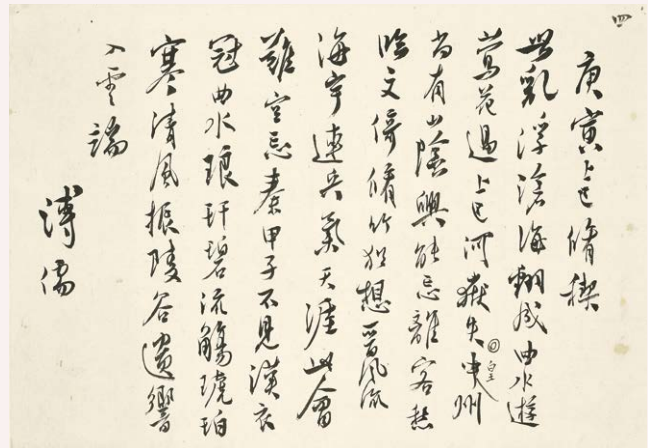 四
庚寅上巳脩禊
世亂浮滄海翻成曲水遊
鶯花過上巳河嶽失中州
皇
尚有山陰興能忘離客愁
臨文倚脩竹猶想晉風流
海宇連兵氣天涯此會
難空忘秦甲子不見漢衣
冠曲水琅玕碧流觴琥珀
寒清風振陵谷遺響
入雲端
溥儒